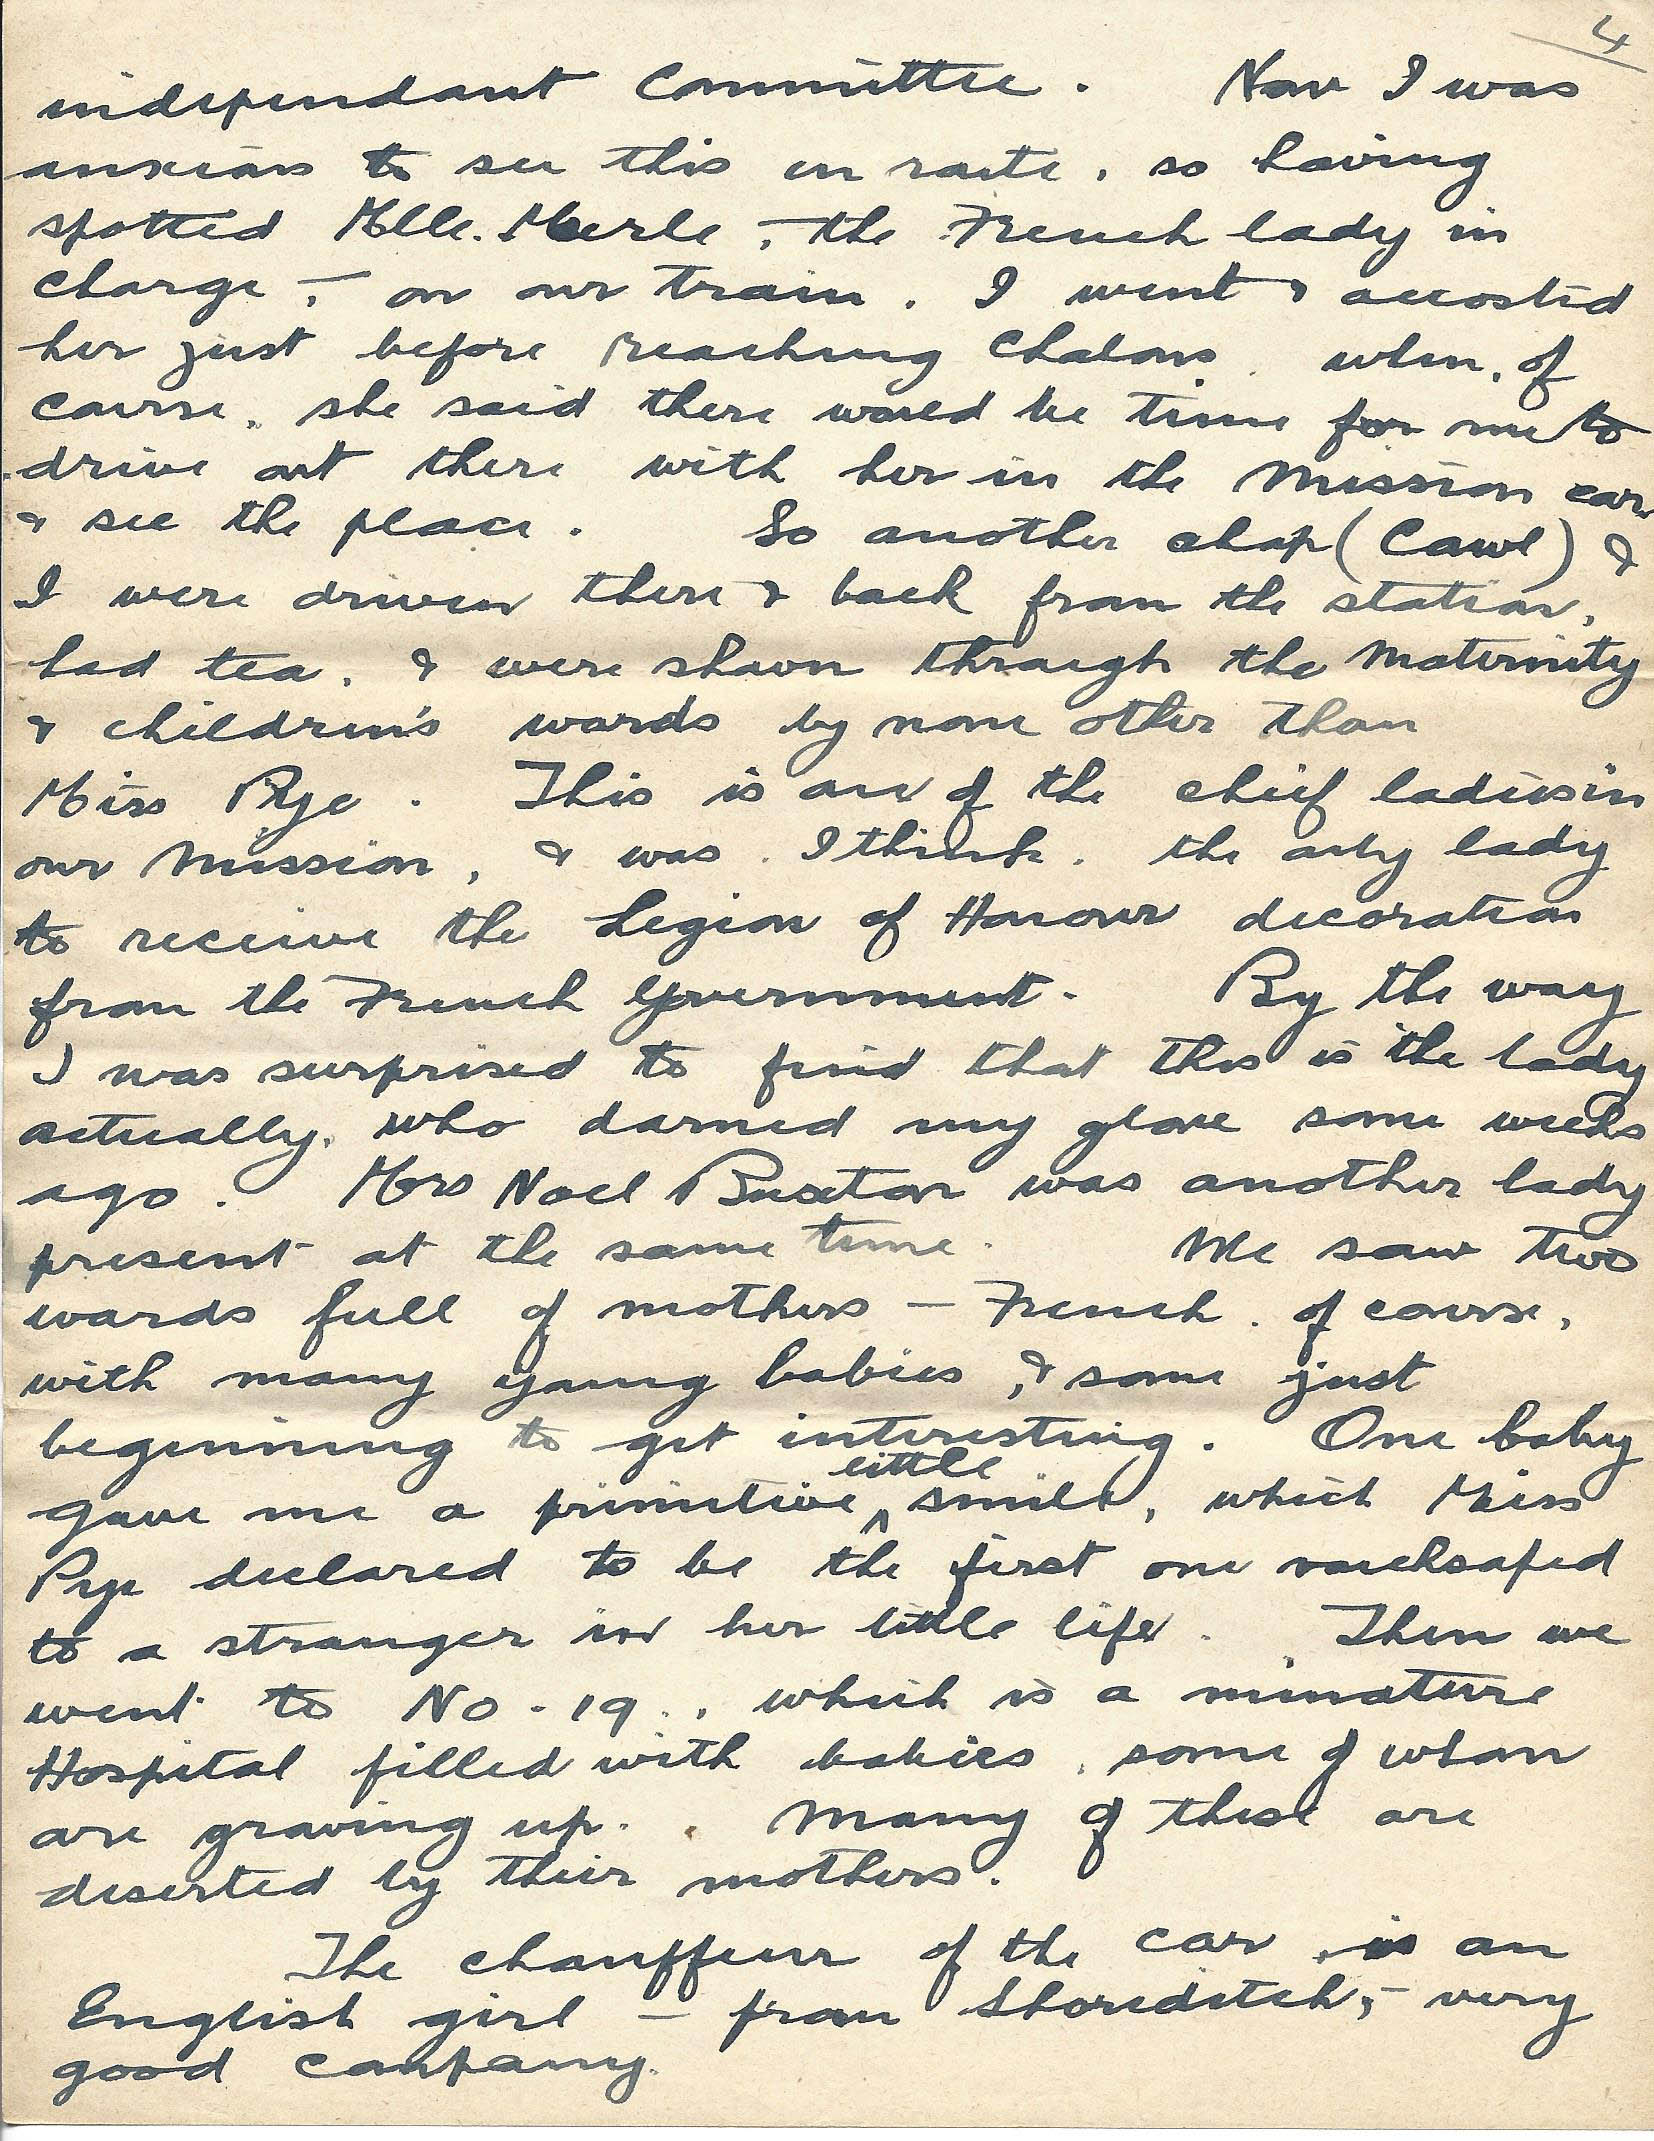 4
independant Committee. Now I was
anxious to see this en route, so having
spotted Mlle. Merle, - the French lady in
charge, - on our train. I went & accosted
her just before reaching Chalons. when, of
course, she said there would be time for me to
drive out there with her in the Mission car
& see the place. So another chap (Cawl) &
I were driven there & back from the station,
had tea, & were shown through the Maternity
& children's wards by none other than
Miss Pye. This is one of the chief ladies in
our Mission, & was, I think, the only lady
to receive the Legion of Honour decoration
from the French Government. By the way
I was surprised to find that this is the lady
actually, who darned my glove some weeks
ago. Mrs Noel Buxton was another lady
present at the same time. We saw two
wards full of mothers - French, of course,
with many young babies, & some just
beginning to get interesting. One baby
gave me a primitive little smile, which Miss
Pye declared to be the first one vouchsafed
to a stranger in her little life. Then we
went to No. 19., which is a minature
Hospital filled with babies, some of whom
are growing up. Many of these are
deserted by their mothers.
The chauffeur of the car is an
English girl - from Shoreditch, - very
good company.